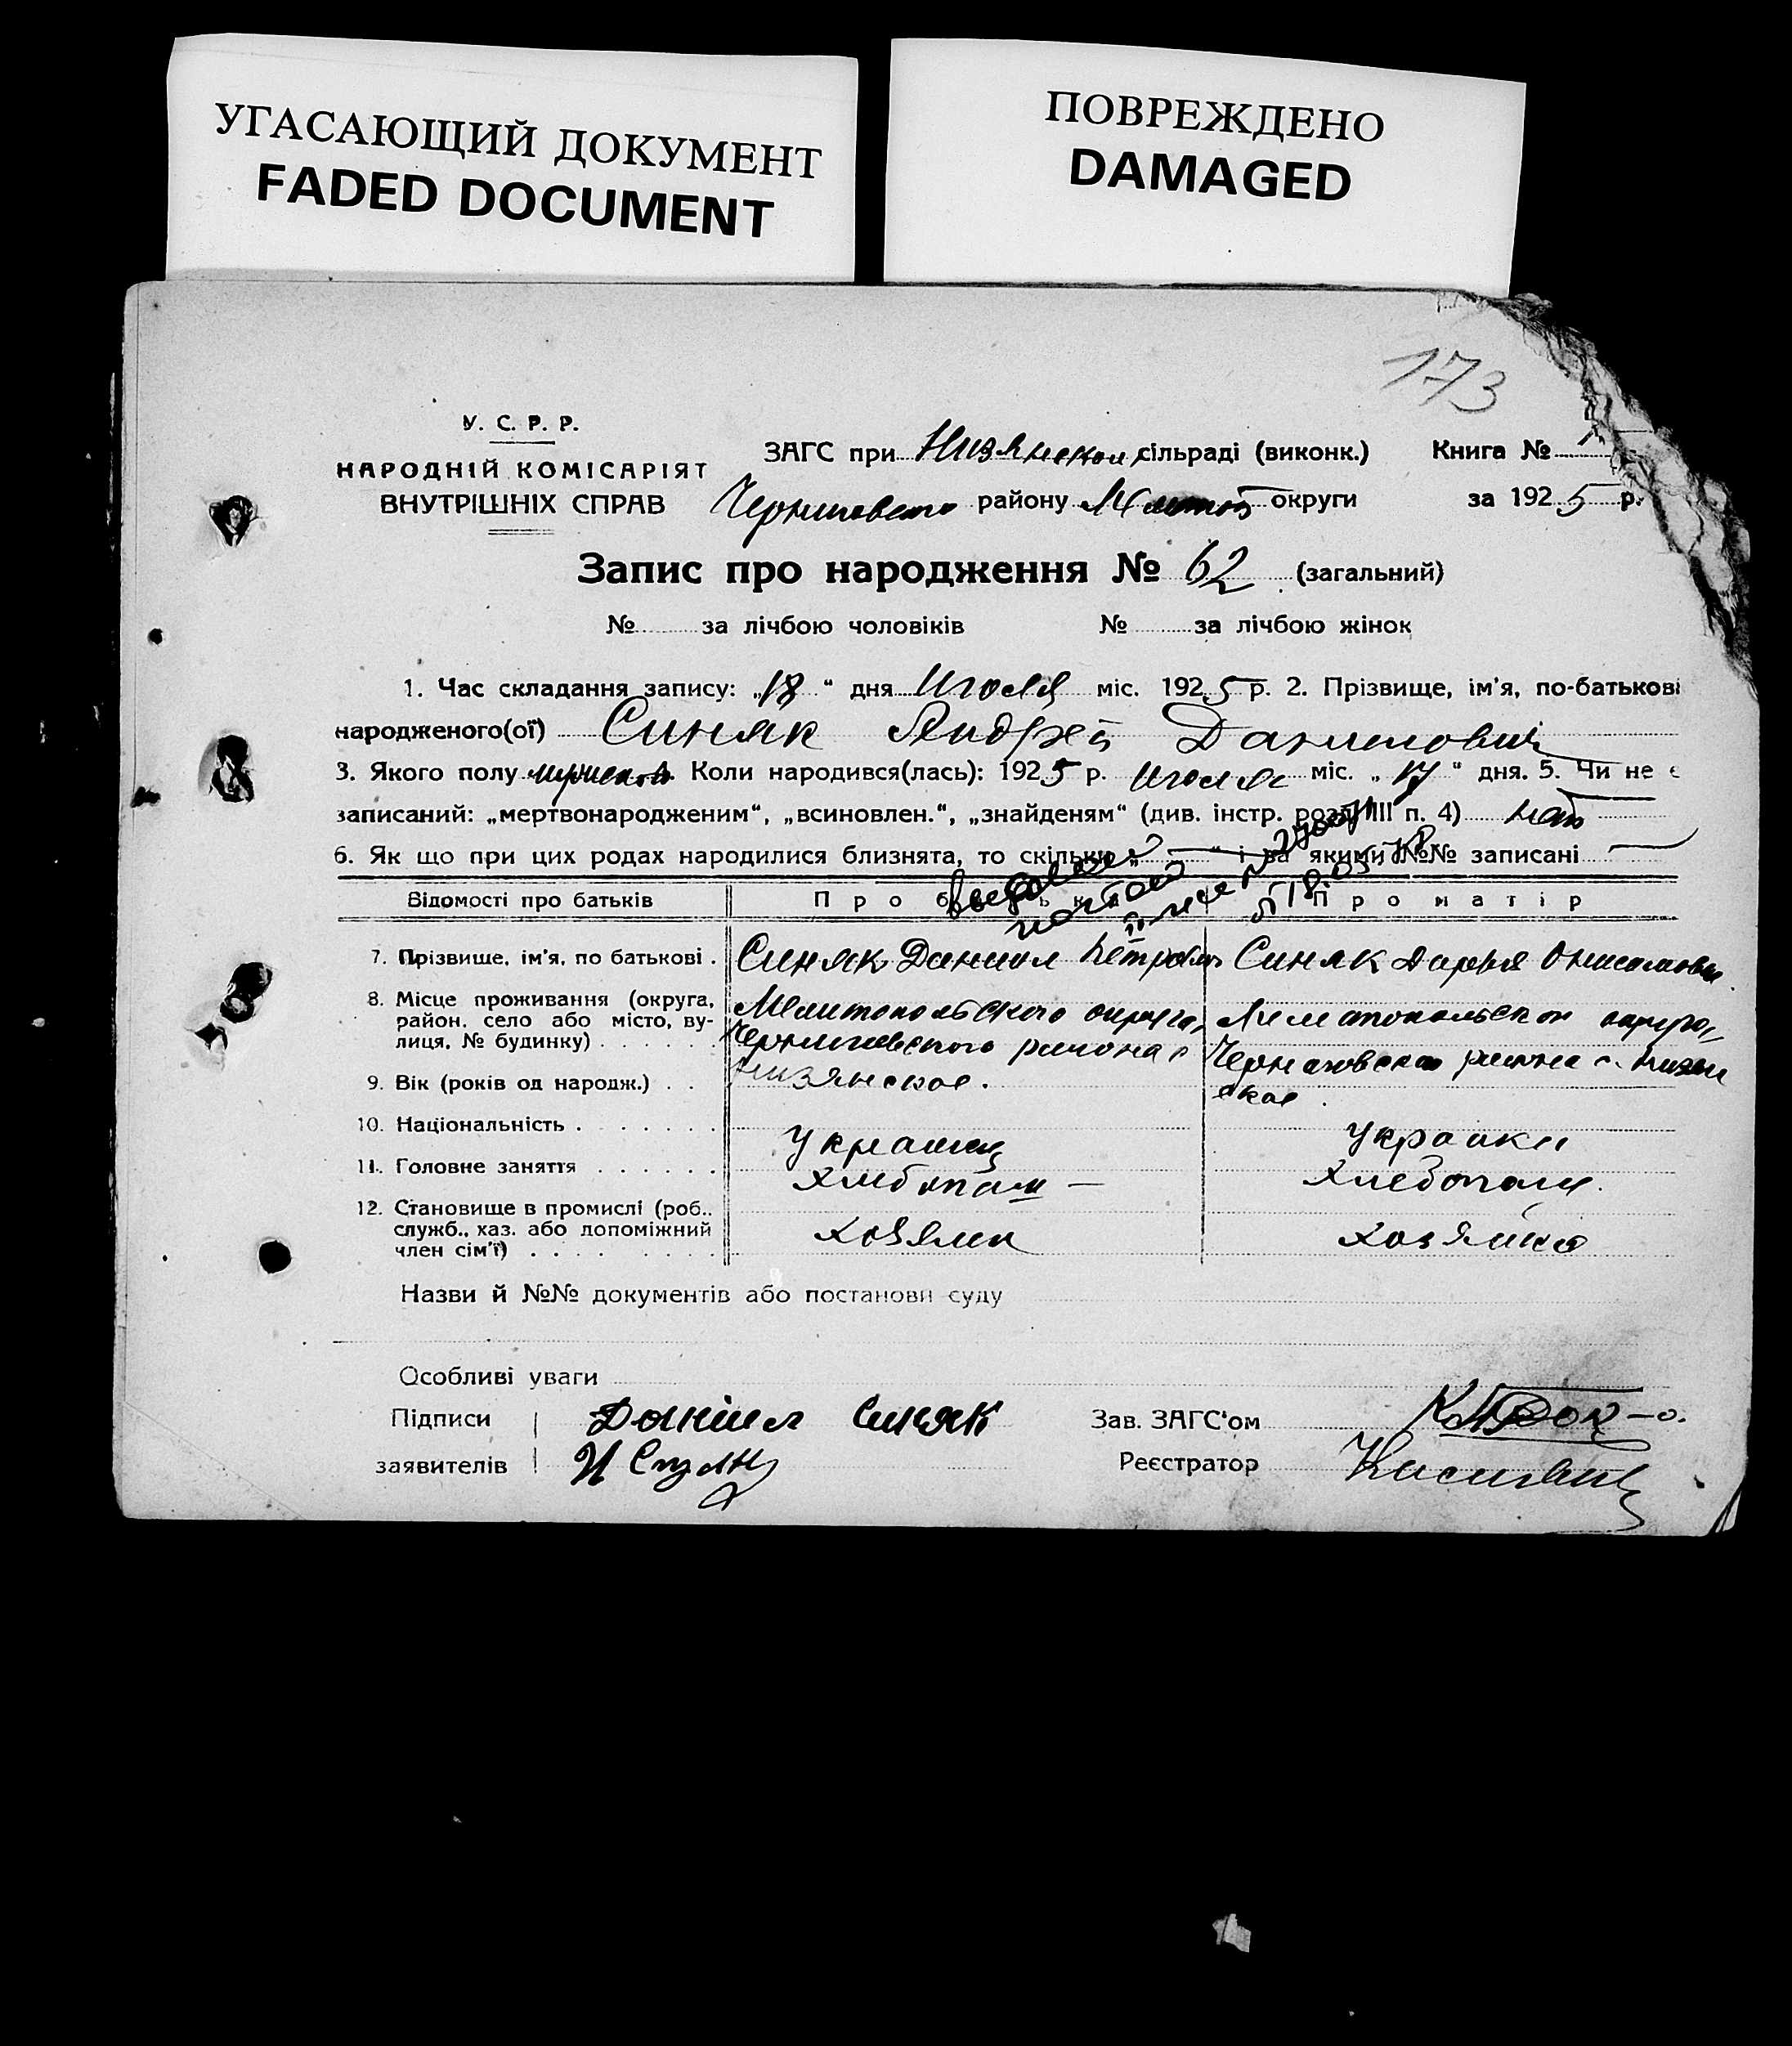 УГАСАЮЩИЙ ДОКУМЕНТ
FADED DOCUMENT
ПОВРЕЖДЕНО
DAMAGED
173
У. С. Р. Р.
НАРОДНІЙ КОМІСАРІЯТ
ВНУТРІШНІХ СПРАВ
ЗАГС при Низянском сільраді (виконк.) Книга №
Черниговского району Мелитоп округи за 1925 р.
Запис про народження № 62 (загальний)
№ за лічбою чоловіків № за лічбою жінок
1. Час складання запису: „18“ дня Июля міс. 1925 р. 2. Прізвище, ім'я, по-батькові
народженого(ої) Синяк Андрей Данилович
3. Якого полу мужского Коли народився(лась): 1925 р. июля міс. „17“ дня. 5. Чи не є
записаний: „мертвонародженим“, „всиновлен.“, „знайденям“ (див. інстр. розд. III п. 4) нет
6. Як що при цих родах народилися близнята, то скільки „ — “ і за якими №№ записані —
Відомості про батьків Про батька Про матір
7. Прізвище, ім'я, по батькові . Синяк Даниил Петров Синяк Дарья Онисимовна
8. Місце проживання (округа, район, село або місто, вулиця, № будинку) Мелитопольского округа, Мелитопольского округа,
Черниговского района с Черниговского района с. Низян
9. Вік (років од народж.) . . Низянское. ское.
10. Національність . Украинец Украинка
11. Головне заняття Хлебопаш — Хлебопаш.
12. Становище в промислі (роб.. служб., хаз. або допоміжний член сім'ї) Хозяин Хозяйка
Назви й №№ документів або постанови суду
Особливі уваги
Підписи Даниил Синяк Зав. ЗАГС'ом
заявителів Реєстратор